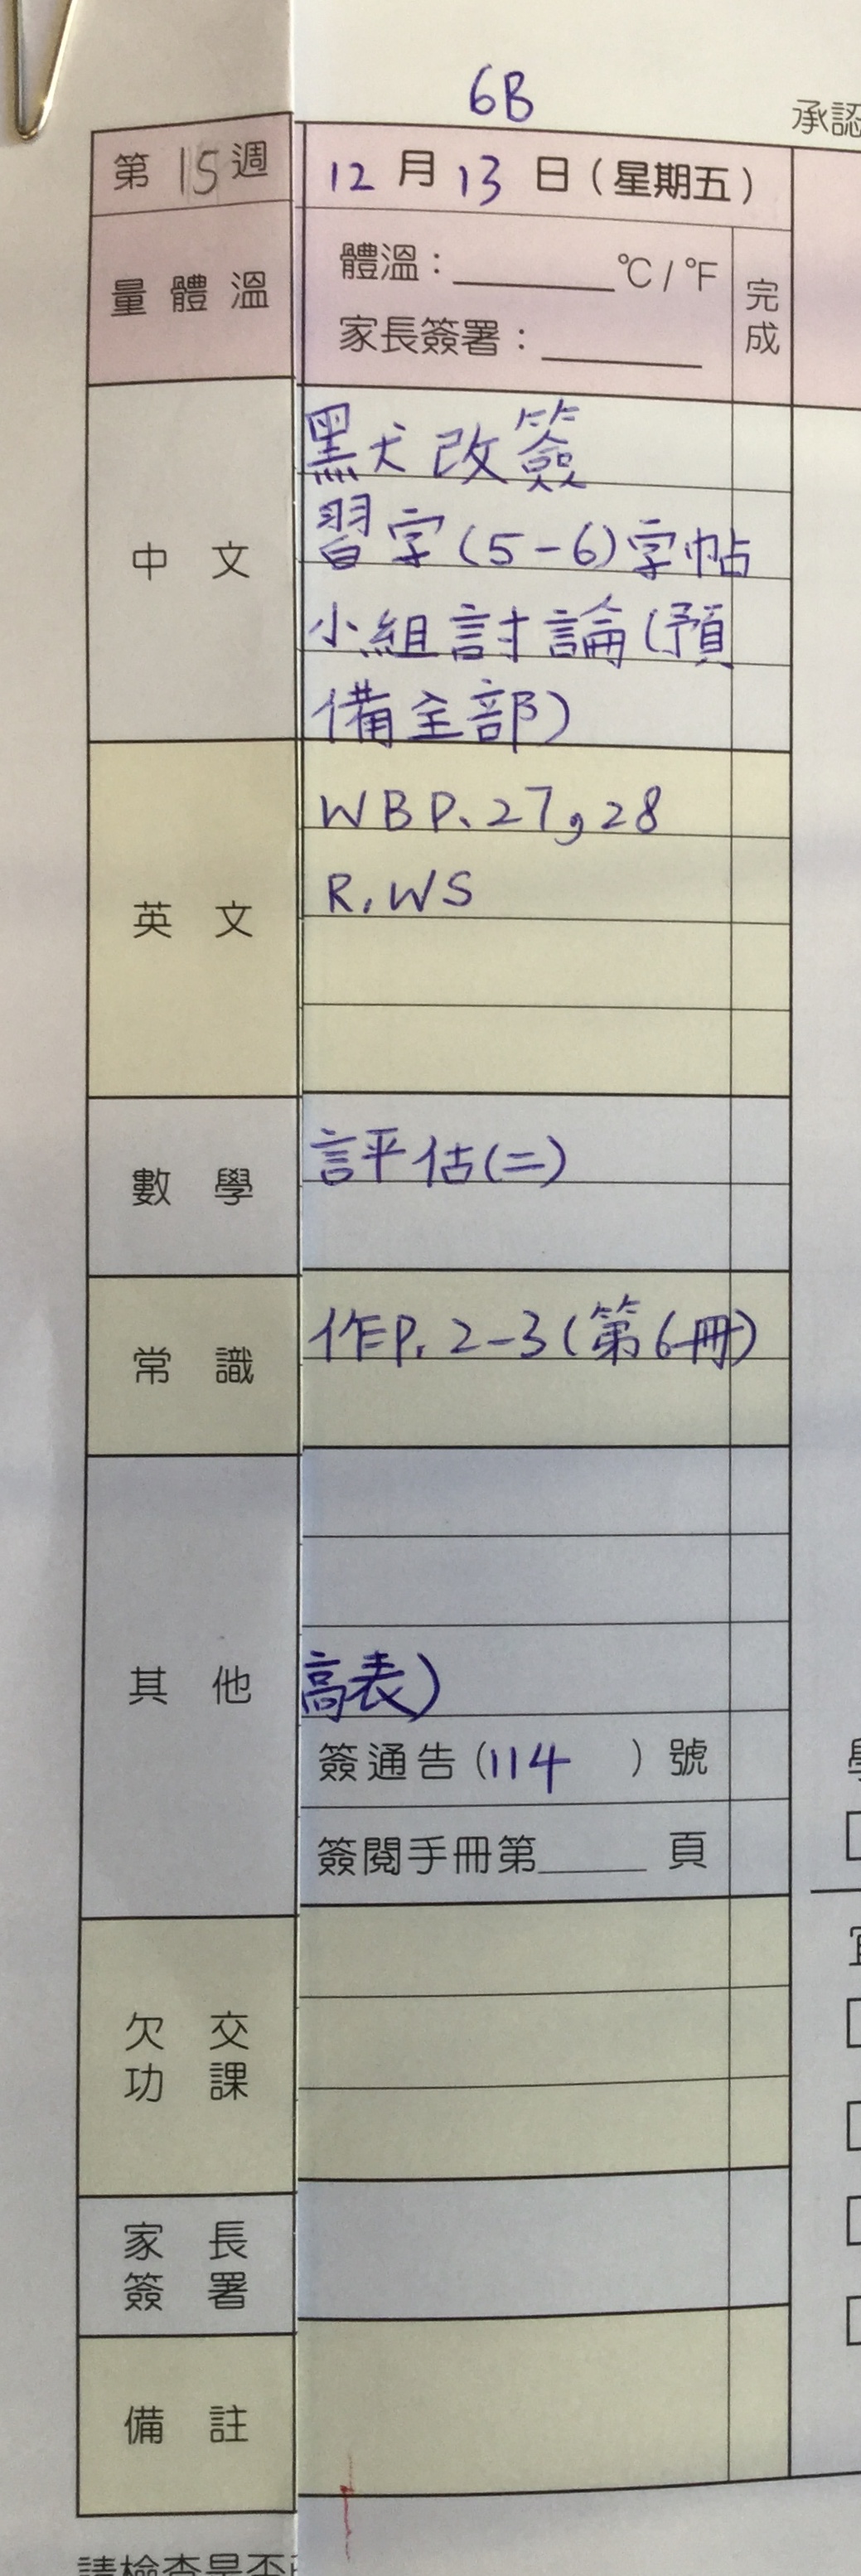 6B
承認
第 15 週
12 月 13 日 (星期五)
量 體 溫
體溫：______ ℃ / ℉
家長簽署：______
完成
中 文
黑犬改簽
習字(5-6)字帖
小組討論(預
備全部)
英 文
WBP.27,28
R.WS
數 學
言平估(二)
常 識
作P.2-3(第6冊)
其 他
高表)
簽通告(114 ) 號
簽閱手冊第______ 頁
欠 交
功 課
家 長
簽 署
備 註
請檢查是否